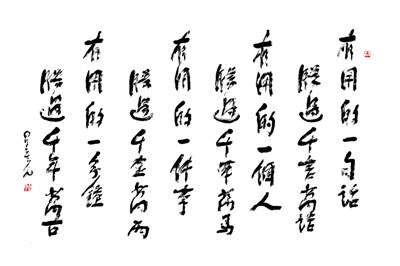 有用的一句話
勝過千言萬語
有用的一個人
勝過千軍萬馬
有用的一件事
勝過千查萬両
有用的一分鐘
勝過千年萬古